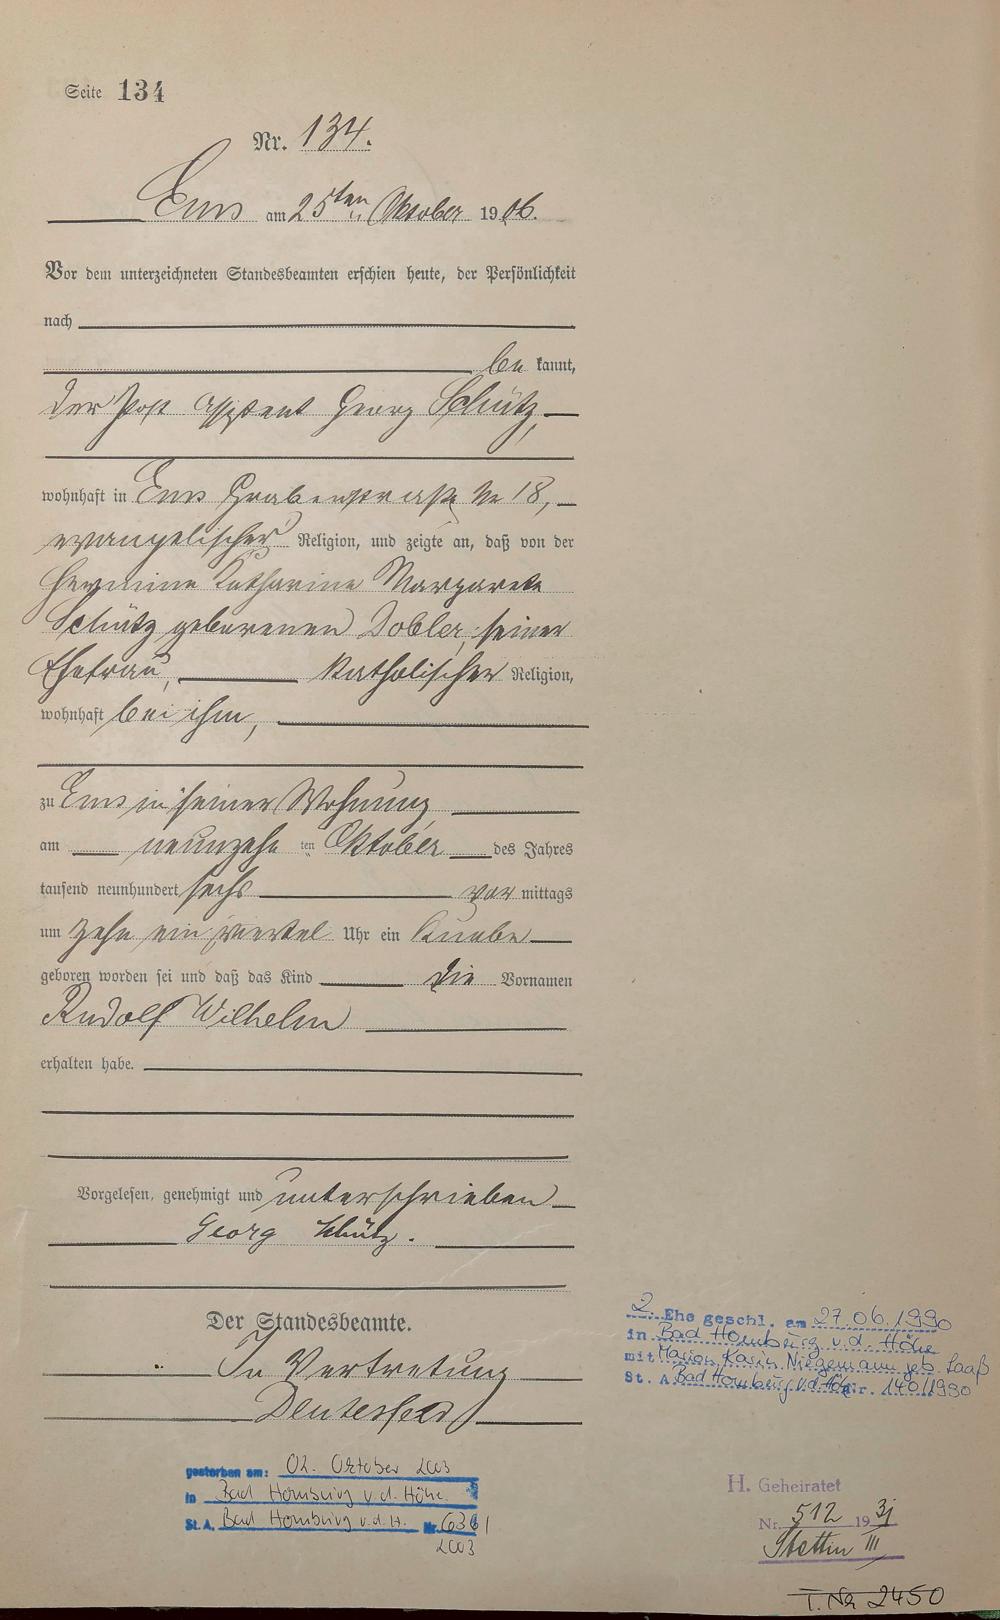 Seite 134
Nr. 134.
Ems am 25ten Oktober 1906.
Vor dem unterzeichneten Standesbeamten erschien heute, der Persönlichkeit
nach
be kannt,
der Post assistent Georg Schütz,
wohnhaft in Ems Grabenstraße No 18,
evangelischer Religion, und zeigte an, daß von der
Hermine Katharine Margarete
Schütz geborenen Dobler, seiner
Ehefrau, katholischer Religion,
wohnhaft bei ihm,
zu Ems in seiner Wohnung
am neunzehn ten Oktober des Jahres
tausend neunhundert sechs vor mittags
um zehn ein viertel Uhr ein Knabe
geboren worden sei und daß das Kind die Vornamen
Rudolf Wilhelm
erhalten habe.
Vorgelesen, genehmigt und unterschrieben
Georg Schütz.
Der Standesbeamte.
In Vertretung
2. Ehe geschl. am 27.06.1990
in Bad Homburg v.d. Höhe
mit Marion Karin Niegemann geb. Saaß
St. A. Bad Homburg v.d. Höhe Nr. 140/1990
gestorben am: 02. Oktober 2003
in Bad Homburg v.d. Höhe
St. A. Bad Homburg v.d.H. Nr.
2003
H. Geheiratet
Nr. 512 1931
Stettin III
T. Nr 2450